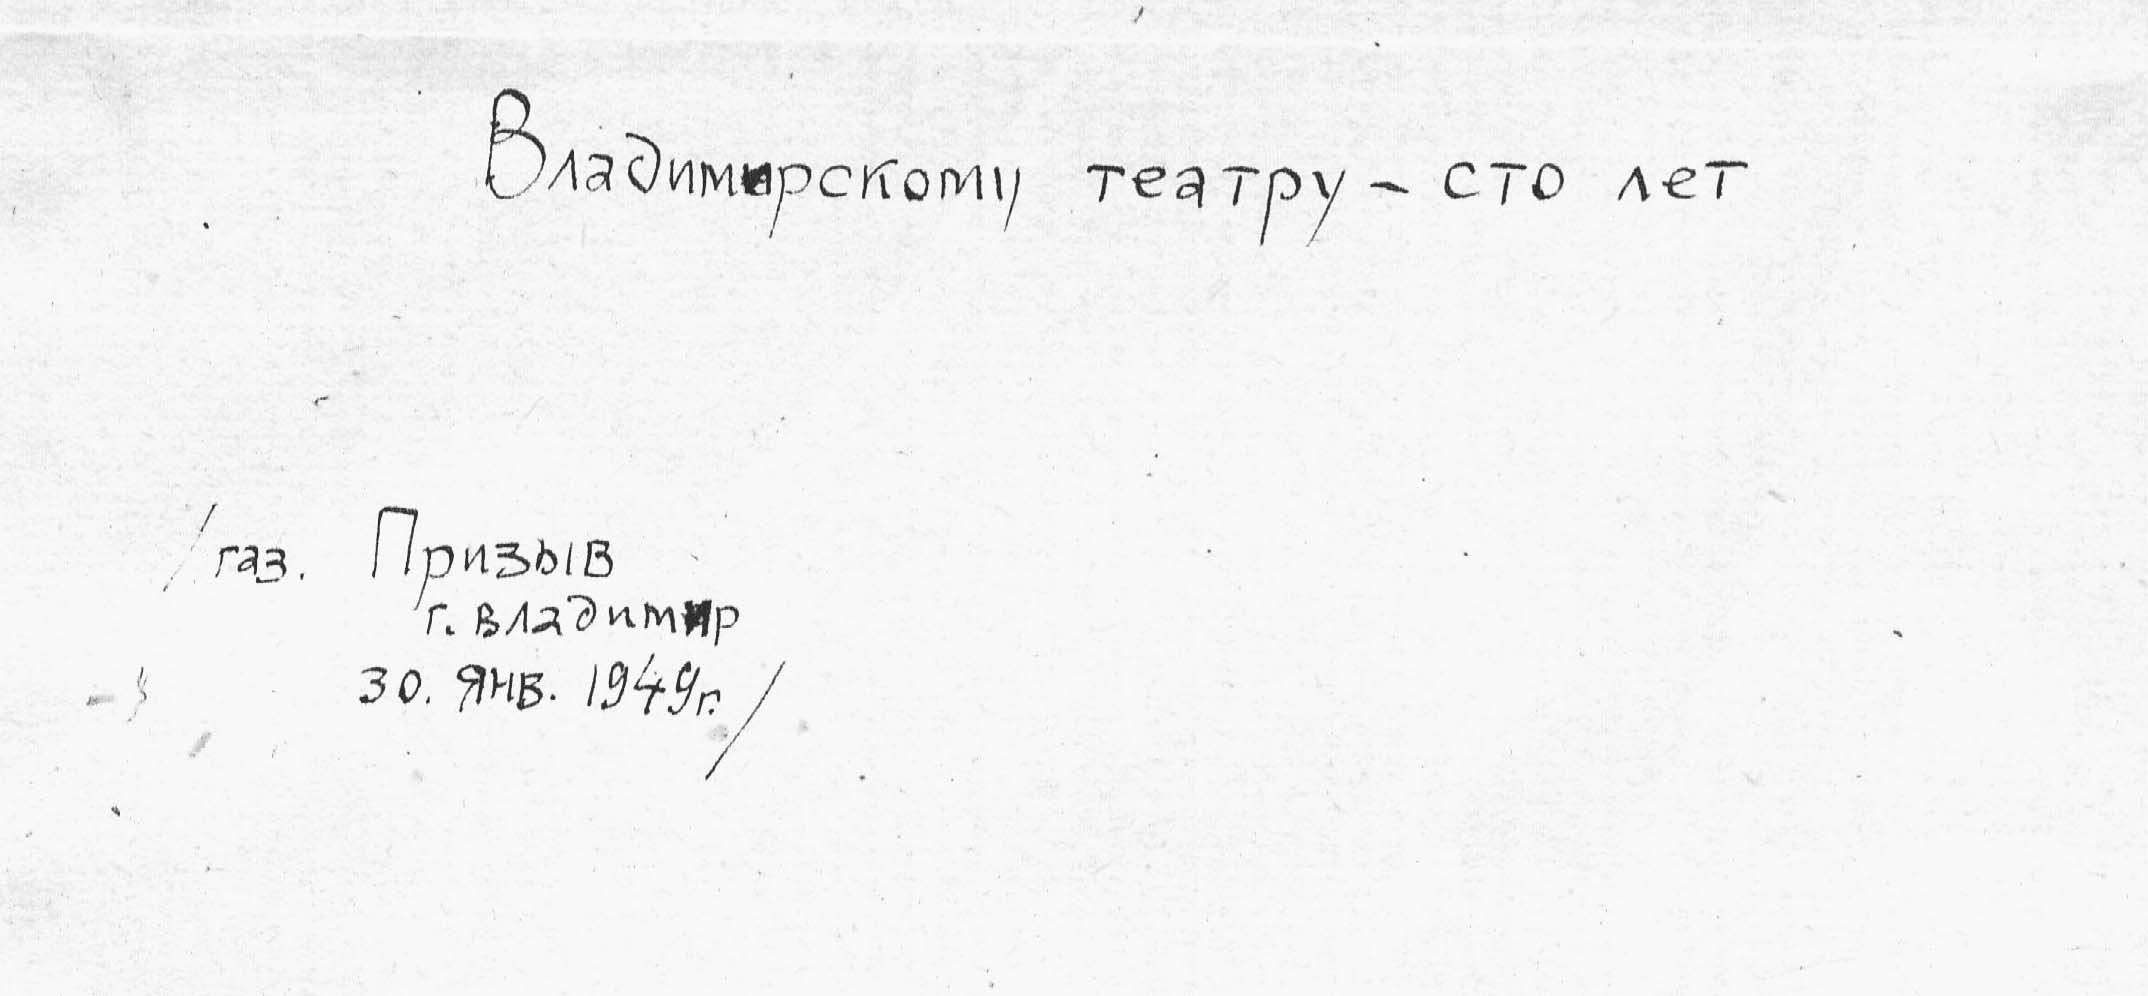 Владимирскому театру - сто лет
/газ. Призыв
г. Владимир
30. янв. 1949г./